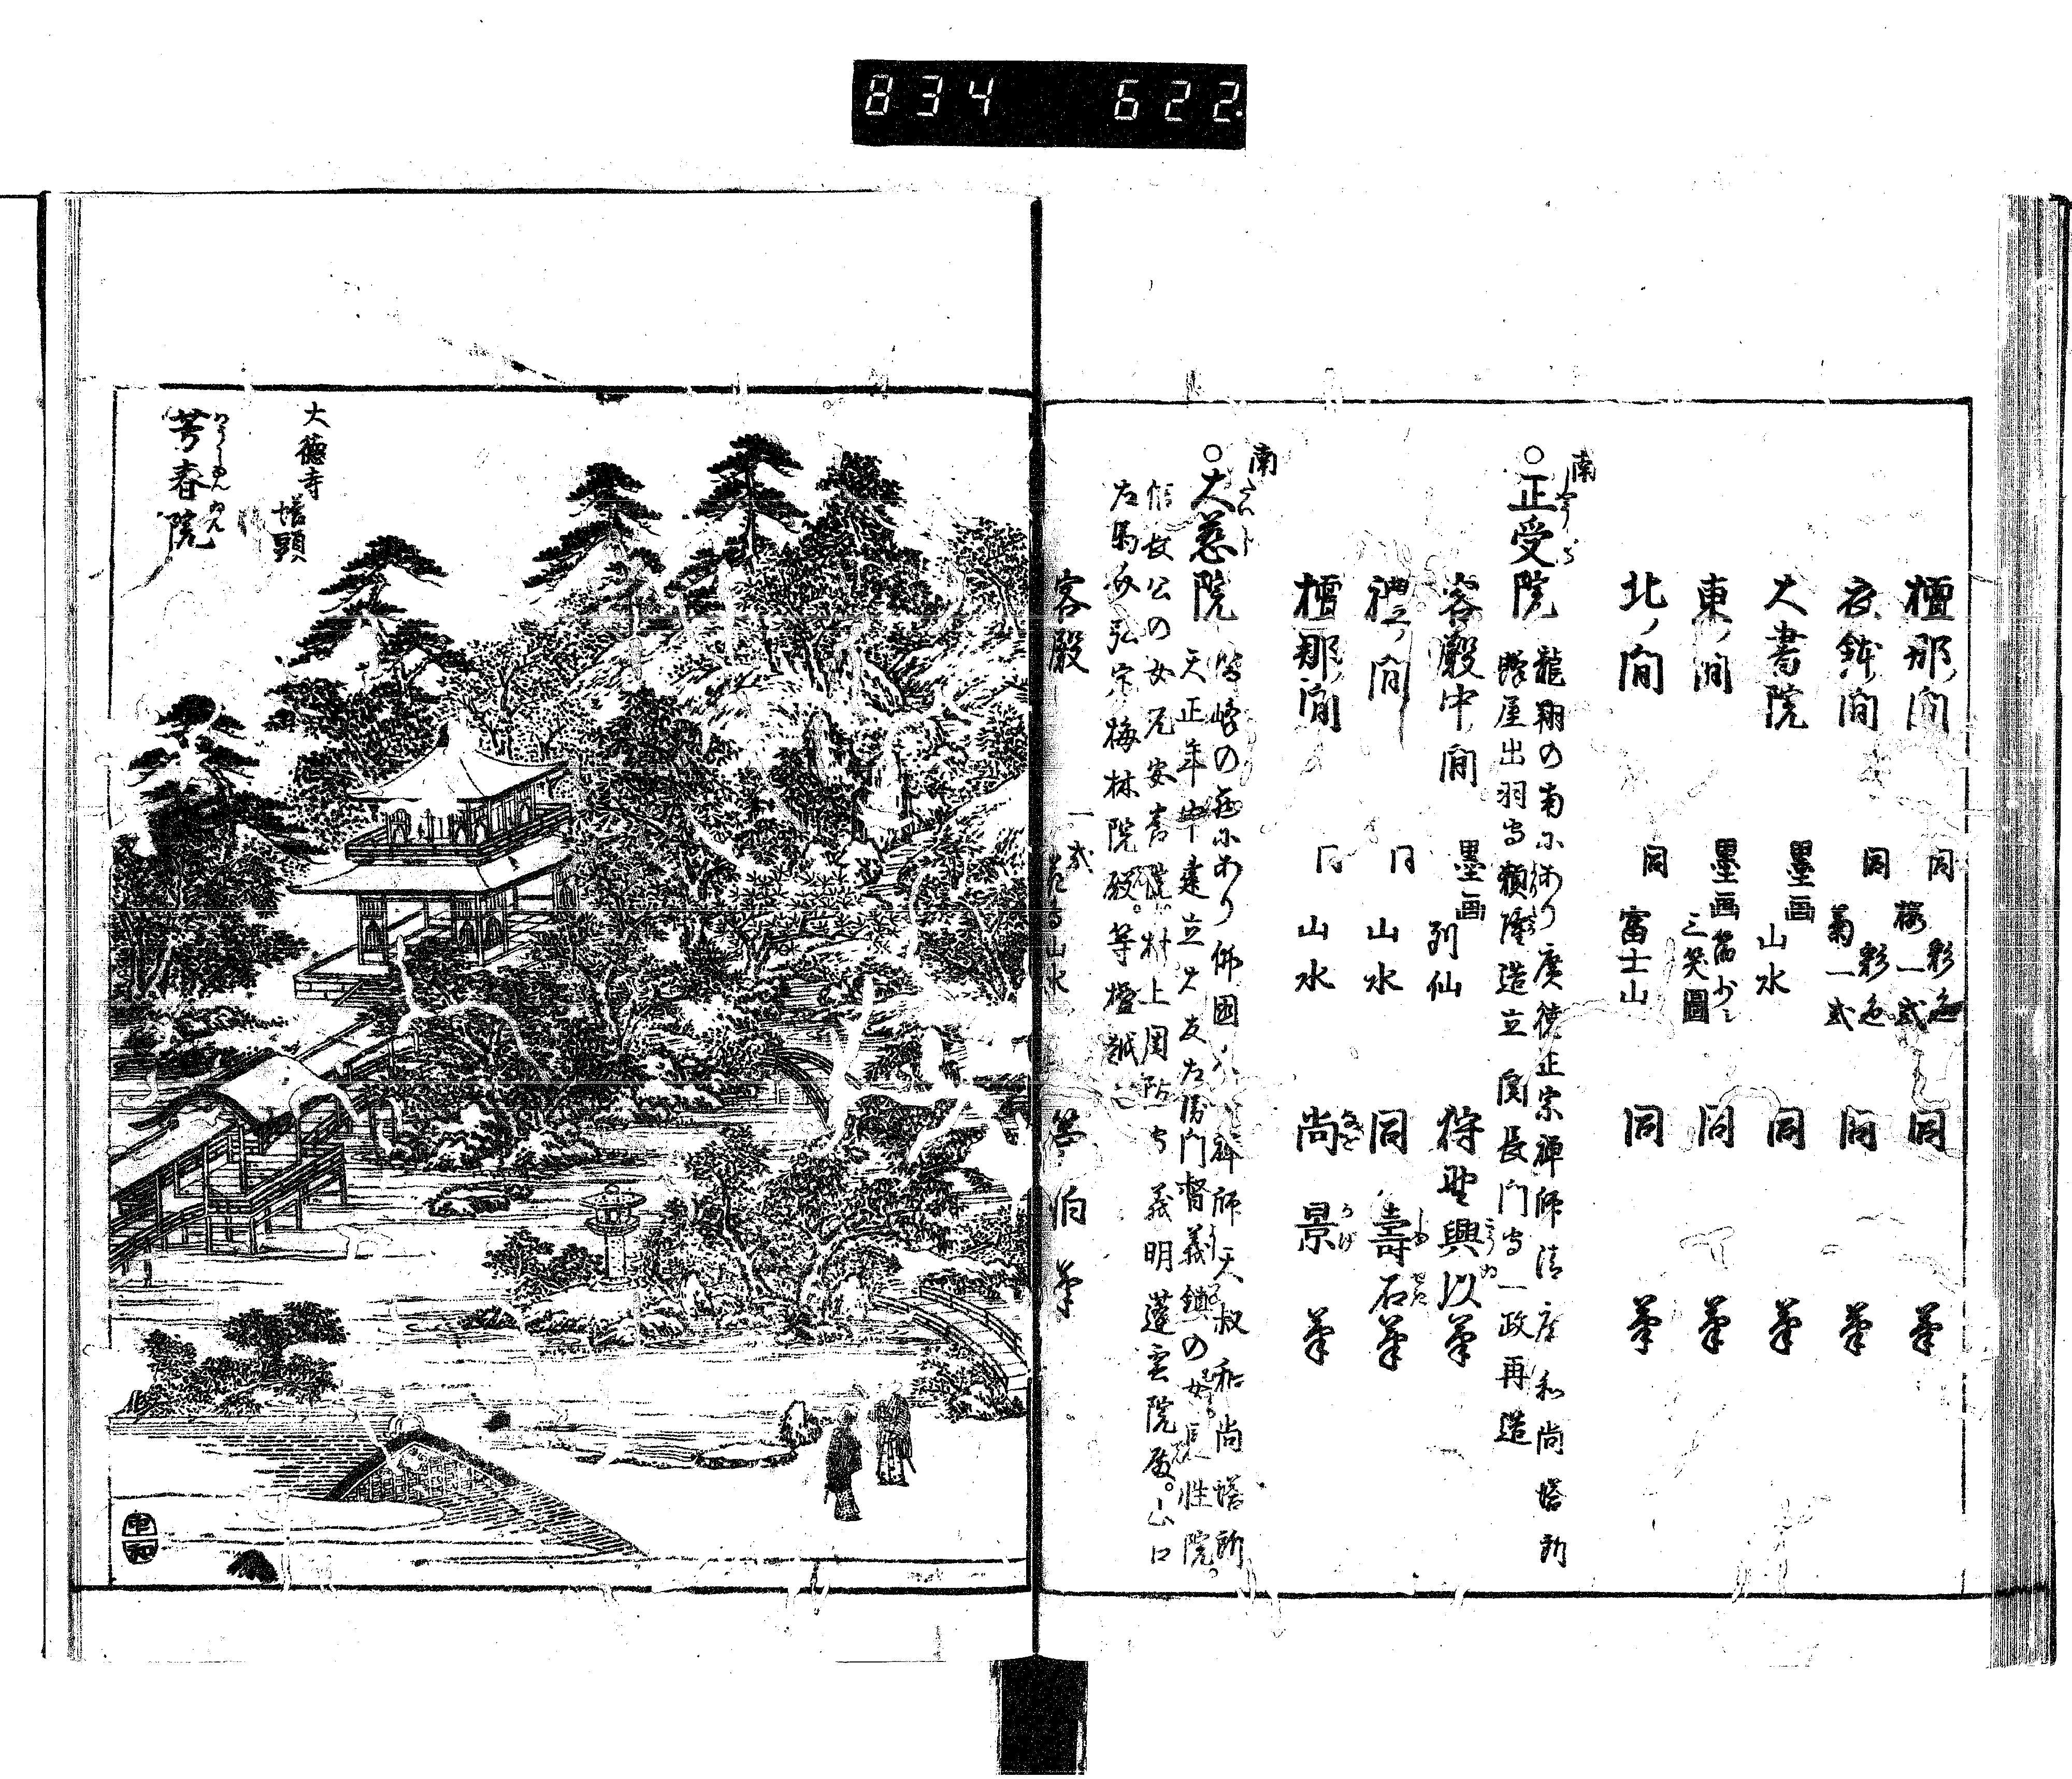 834 622.
檀那ノ間 同 彩色 桜一式 同 筆
衣鉢ノ間 同 彩色 菊一式 同 筆
大書院 墨画 山水 同 筆
東ノ間 墨画 三笑圖 同 筆
北ノ間 同 富士山 同 筆
南
○正受院 龍翔の南にあり 廣徳正宗禅師清庵和尚塔所
蜂屋出羽守頼隆造立 関長門守一政再造
客殿中ノ間 墨画 列仙 狩野興以筆
禮ノ間 同 山水 同 壽石筆
檀那ノ間 同 山水 尚景 筆
南
○大慈院 佛國 禅師天叔和尚塔所
天正年中建立大友左衛門督義鎮の 性院。
公の女兄安養院 村上周防守義明蓮雲院殿。山口
左馬介弘宗梅林院殿。等檀越
客殿 一式 山水 等伯筆
大徳寺
塔頭
芳春院
申和